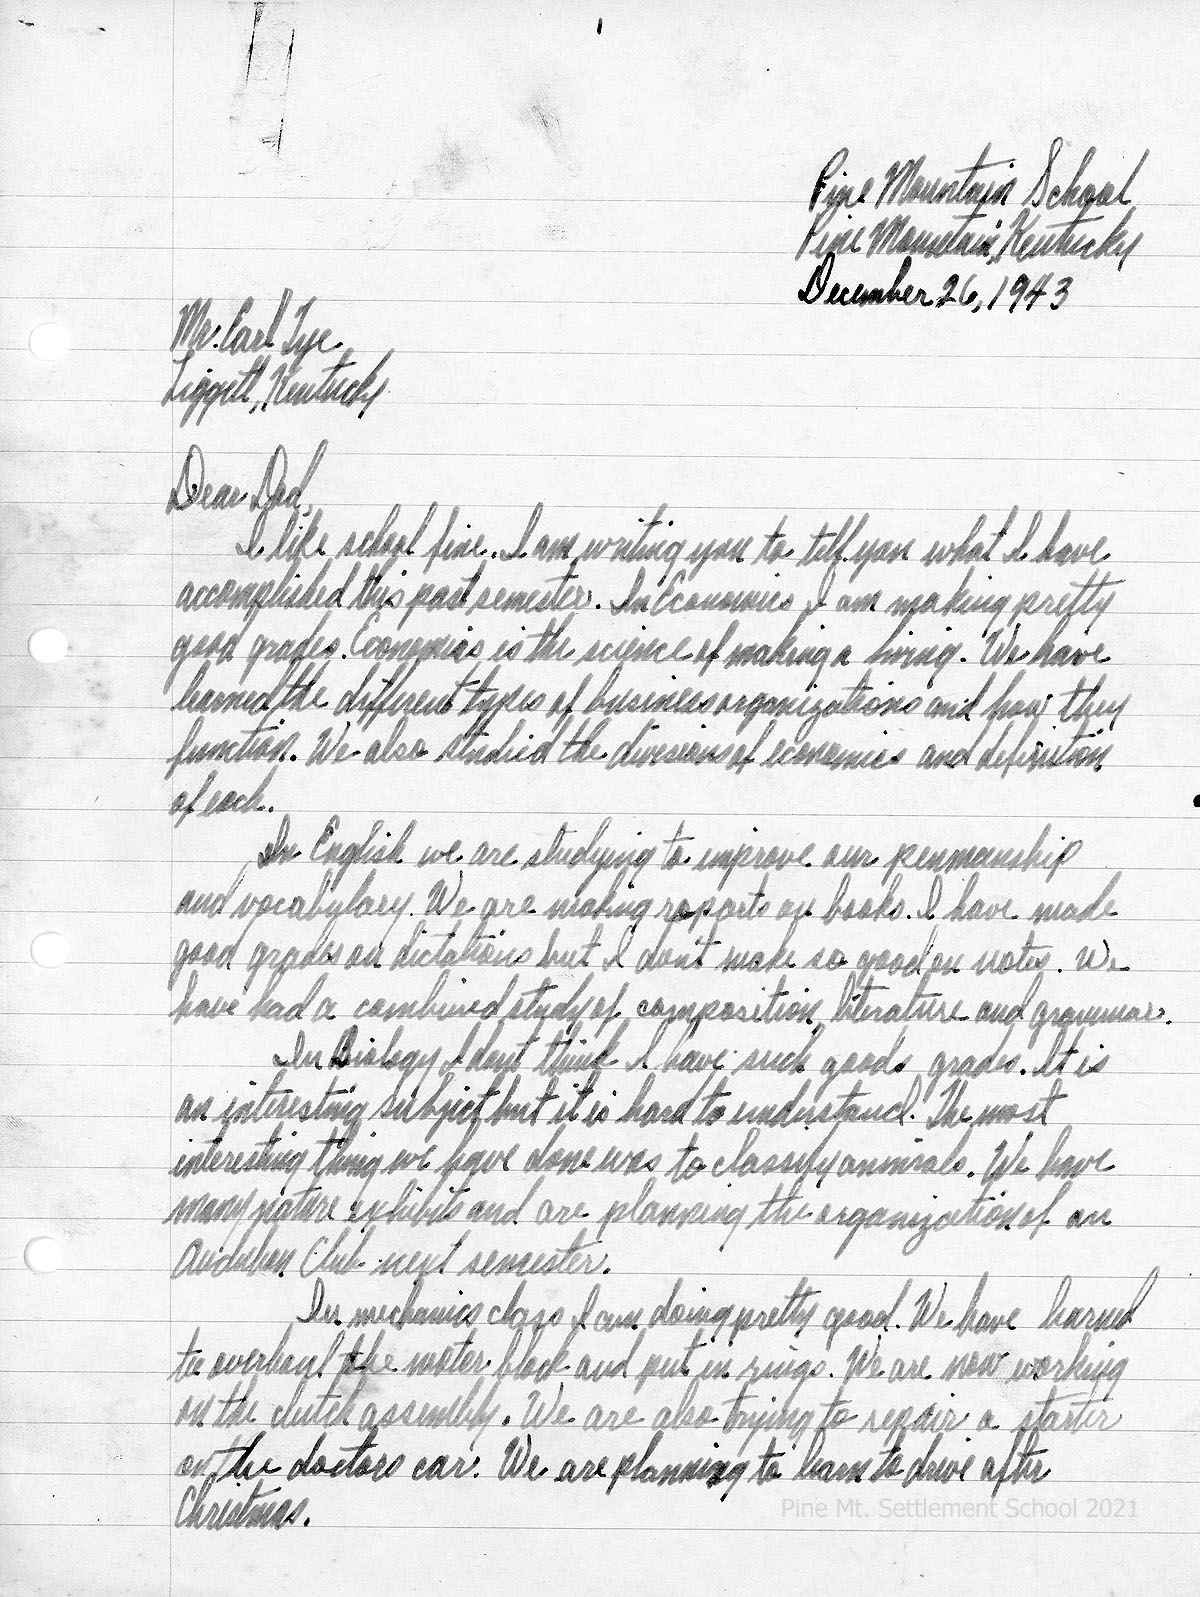 Pine Mountain School
Pine Mountain, Kentucky
December 26, 1943
Mr. Earl Tye
Liggett, Kentucky
Dear Dad,
I like school fine. I am writing you to tell you what I have
accomplished this past semester. In Economics I am making pretty
good grades. Economics is the science of making a living. We have
learned the different types of business organizations and how they
function. We also studied the divisions of economics and definition
of each.
In English we are studying to improve our penmanship
and vocabulary. We are making reports on books. I have made
good grades on dictations but I don't make so good on notes. We
have had a combined study of composition, literature and grammar.
In Biology I don't think I have such goods grades. It is
an interesting subject but it is hard to understand. The most
interesting thing we have done was to classify animals. We have
many nature exhibits and are planning the organization of an
Audubon Club next semester.
In mechanics class I am doing pretty good. We have learned
to overhaul the motor block and put in rings. We are now working
on the clutch assembly. We are also trying to repair a starter
on the doctors car. We are planning to learn to drive after
Christmas.
Pine Mt. Settlement School 2021